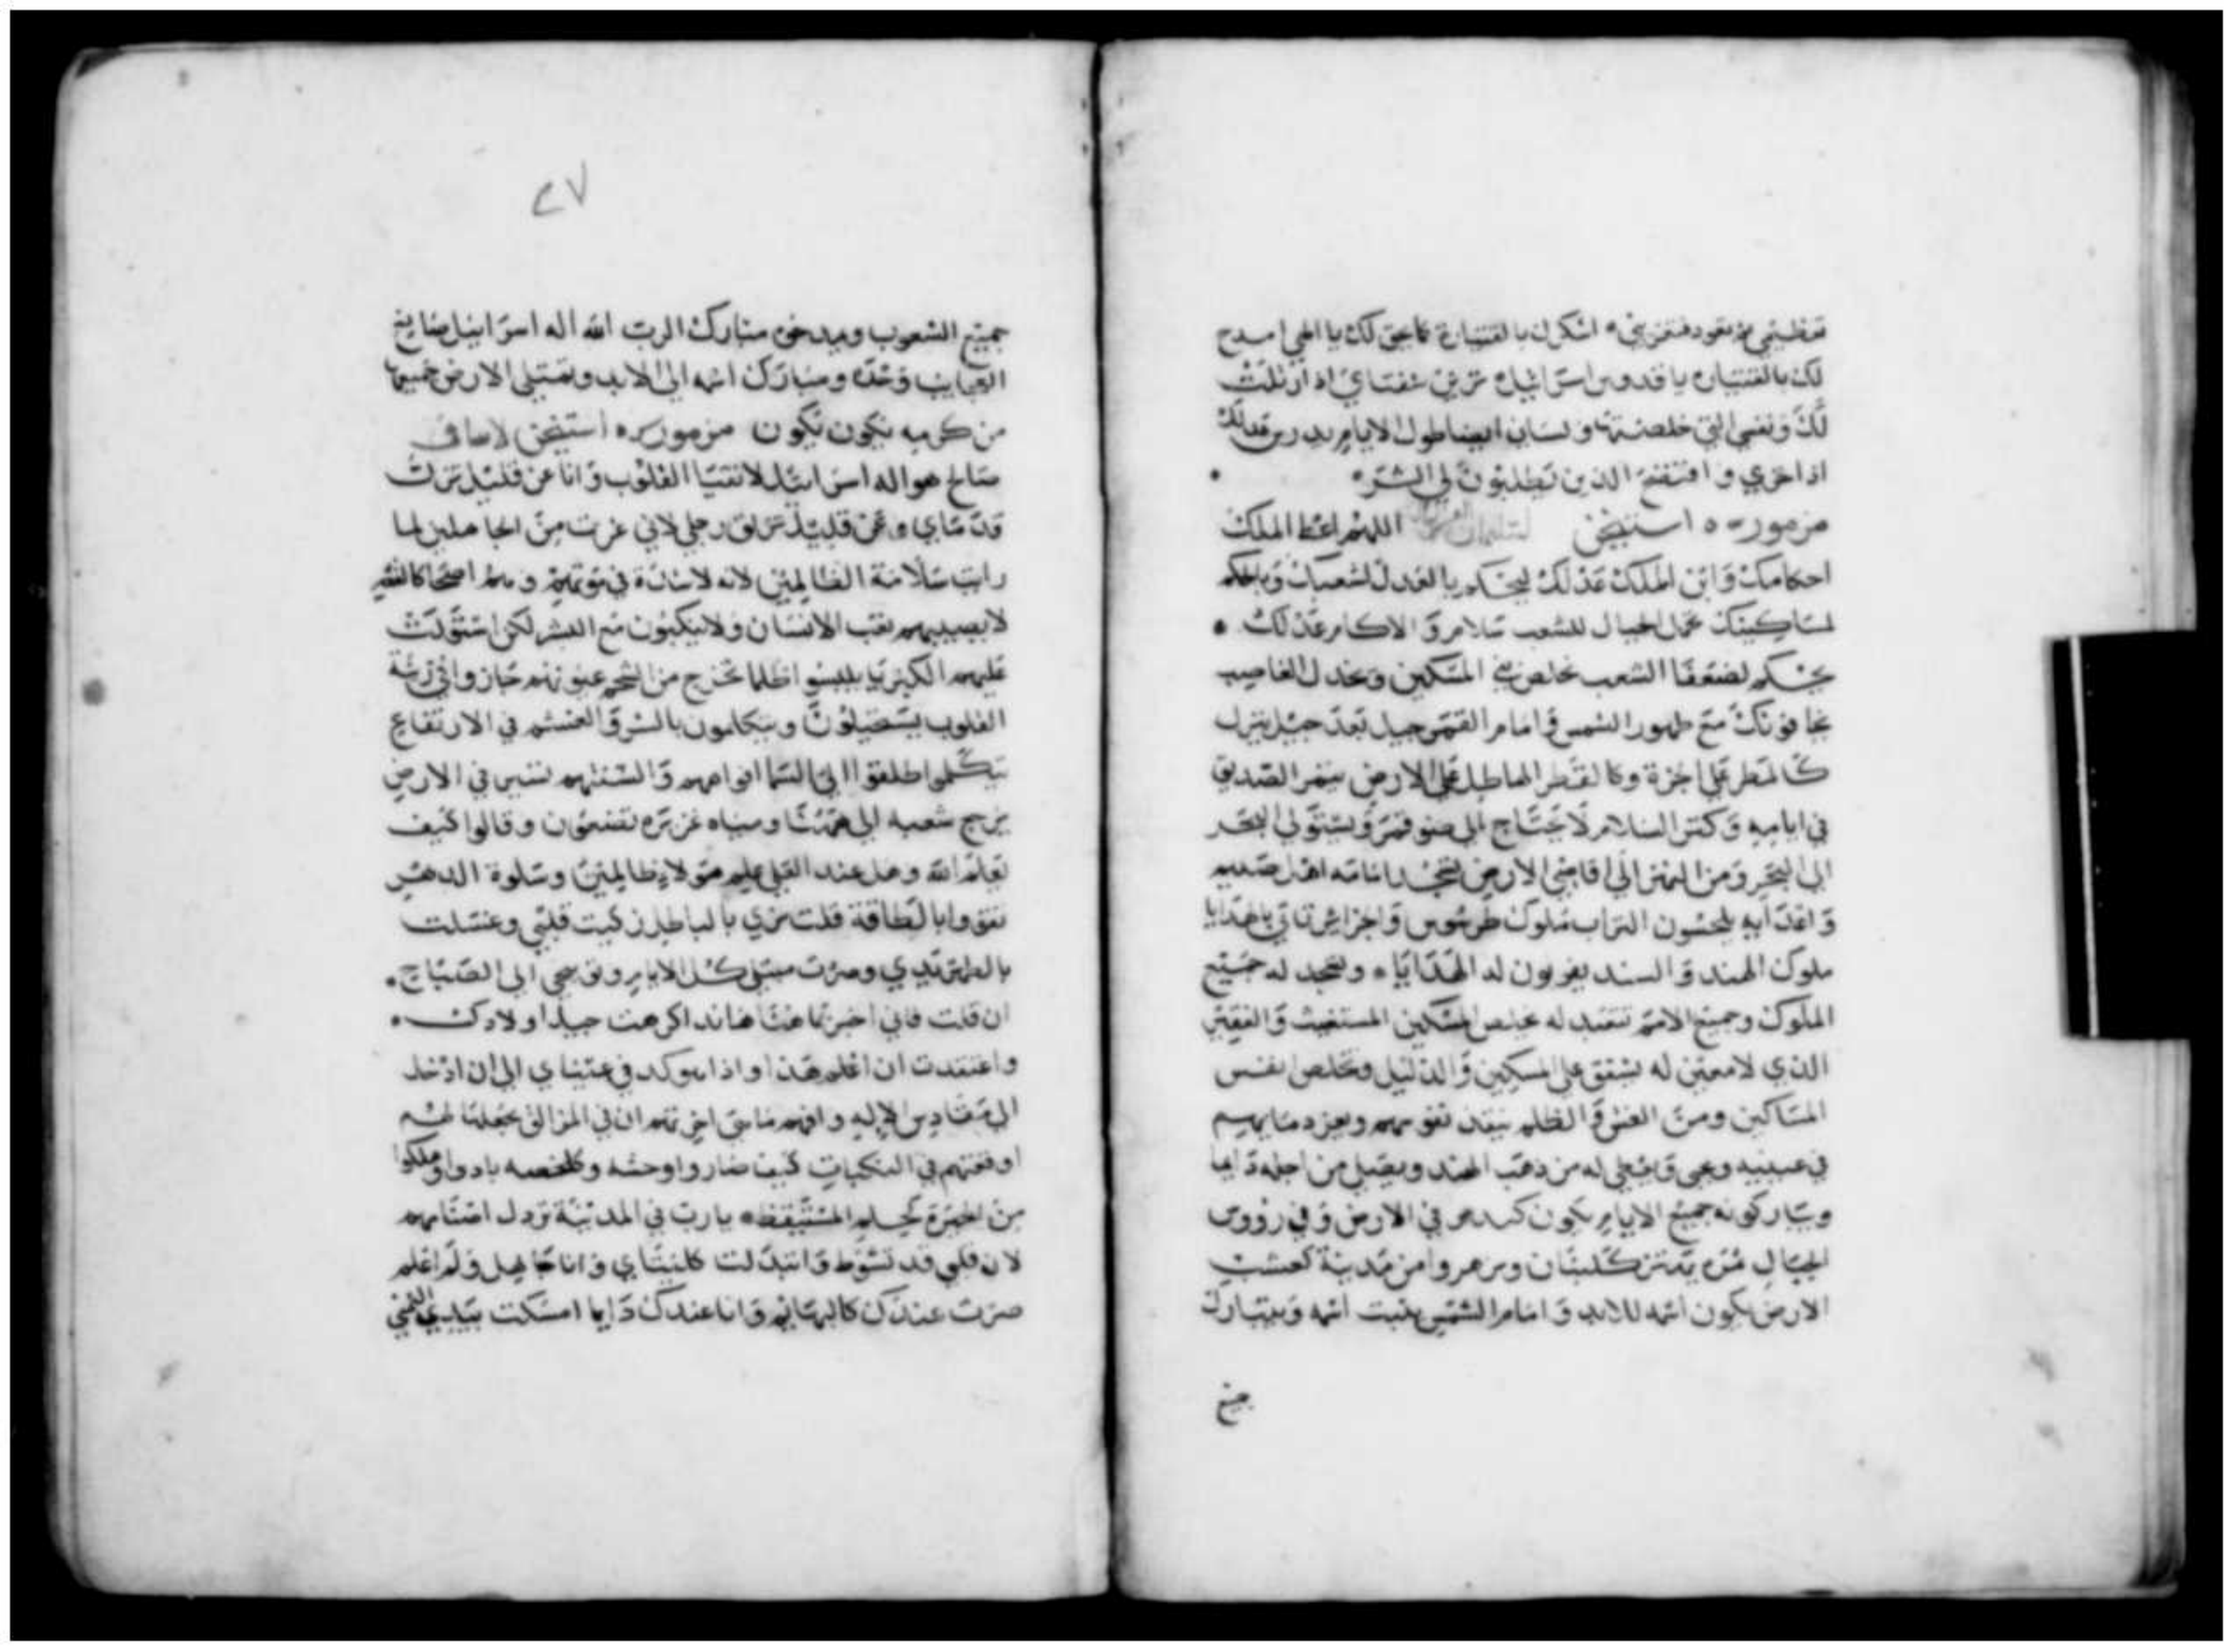 تعظيمي ثم تعود فتعزيني اشكرك بالقيثارة كما يحق لك يا الهي امدح
لك بالقيثاره يا قدوس اسرائيل ترنن شفتاي اذا رتلت
لك ونفسي التي خلصتها ولساني ايضا طول الايام يدرس عدلك
اذا خزي وافتضح الذين يطلبون لي الشر
مزمور استيخن اللهم اعط الملك
احكامك وابن الملك عدلك ليحكم بالعدل لشعبك وبالحكم
لمساكينك تحمل الجبال للشعب سلام والاكام عدلك
يحكم لضعفا الشعب يخلص بني المسكين ويخذل الغاصب
يخافونك مع ظهور الشمس وامام القمر جيل بعد جيل ينزل
كالمطر على الجزة وكالقطر الهاطل على الارض يثمر الصديق
في ايامه وكثر السلام لا يحتاج الى ضو قمر ويستولي البحر
الى البحر ومن النهر الى اقاصي الارض تسجد امامه اهل
واعداايه يلحسون التراب ملوك طرسوس والجزاير تاتي بالهدايا
ملوك الهند والسند يقربون له الهدايا وتسجد له جميع
الملوك وجميع الامم تتعبد له يخلص المسكين المستغيث والفقير
الذي لا معين له يشفق على المسكين والذليل ويخلص نفس
المساكين ومن الغش والظلم ينقذ نفوسهم ويعز دمايهم
في عينيه ويحيى ويعطى له من ذهب الهند ويصلى من اجله دايما
ويباركونه جميع الايام يكون كبدر في الارض وفي رووس
الجبال ثمره كلبنان ويزهروا من مدينة كعشب
الارض يكون اسمه للابد وامام الشمس يثبت اسمه ويتبارك
جميع
٢٧
جميع الشعوب ويمدحونه مبارك الرب الله اله اسراييل صانع
العجايب وحده ومبارك اسمه الى الابد وتمتلي الارض جميعها
من كرمه يكون يكون مزمور استيخن لاساف
صالح هو اله اسرائيل لانقيا القلوب وانا عن قليل تزلت
قدماي وعن قليل تزلق رجلي لاني غرت من الجاهلين لما
رايت سلامة الظالمين لانه لا شدة في موتهم
لا يصيبهم تعب الانسان ولا ينكبون مع البشر لكن استولت
عليهم الكبريا يلبسوا ظلما تخرج من الشحم عيونهم جازوا في زينة
القلوب يستضيلون ويتكلمون بالشر والغشم في الارتفاع
يتكلموا اطلقوا الى السما افواههم والسنتهم تسير في الارض
يرجع شعبه الى ههنا ومياه غزيره تفضون وقالوا كيف
يعلم الله وهل عند العلي علم هولاء ظالمين وسلوة الدهر
تقووا بالطاقة قلت ترى بالباطل زكيت قلبي وغسلت
بالطهر يدي وصرت مبتلى كل الايام وتوبيخي الى الصباح
ان قلت فاني اخبر هاندا كرهت جيل اولادك
واعتقدت ان اعلم هذا واذا هو كد في عيناي الى ان ادخل
الى مقاديس الاله وافهم ما هي اخرتهم ان في المزالق جعلتها لهم
اوقعتهم في النكبات كيف صاروا وحشة وكلحظه بادوا وهلكوا
من الحيرة كحلم المستيقظ يا رب في المدينة ترذل اصنامهم
لان قلبي قد تشوط وانتدلت كليتاي وانا جاهل ولم اعلم
صرت عندك كالبهايم وانا عندك دايما امسكت بيدي اليمنى